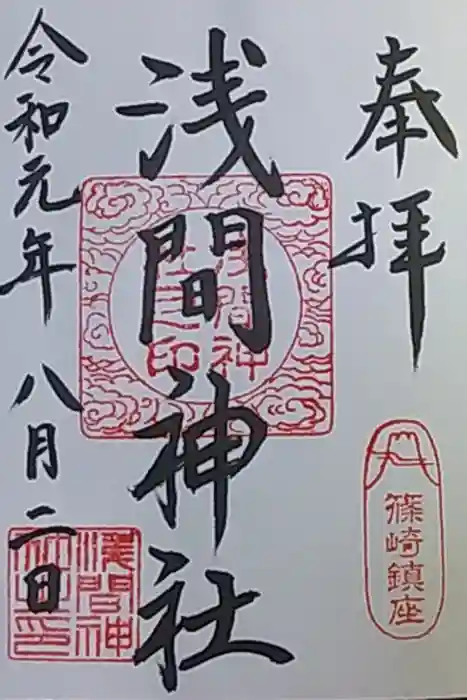 奉拝
篠崎鎮座
浅間神社
浅間神社之印
令和元年八月二日
浅間神社之印